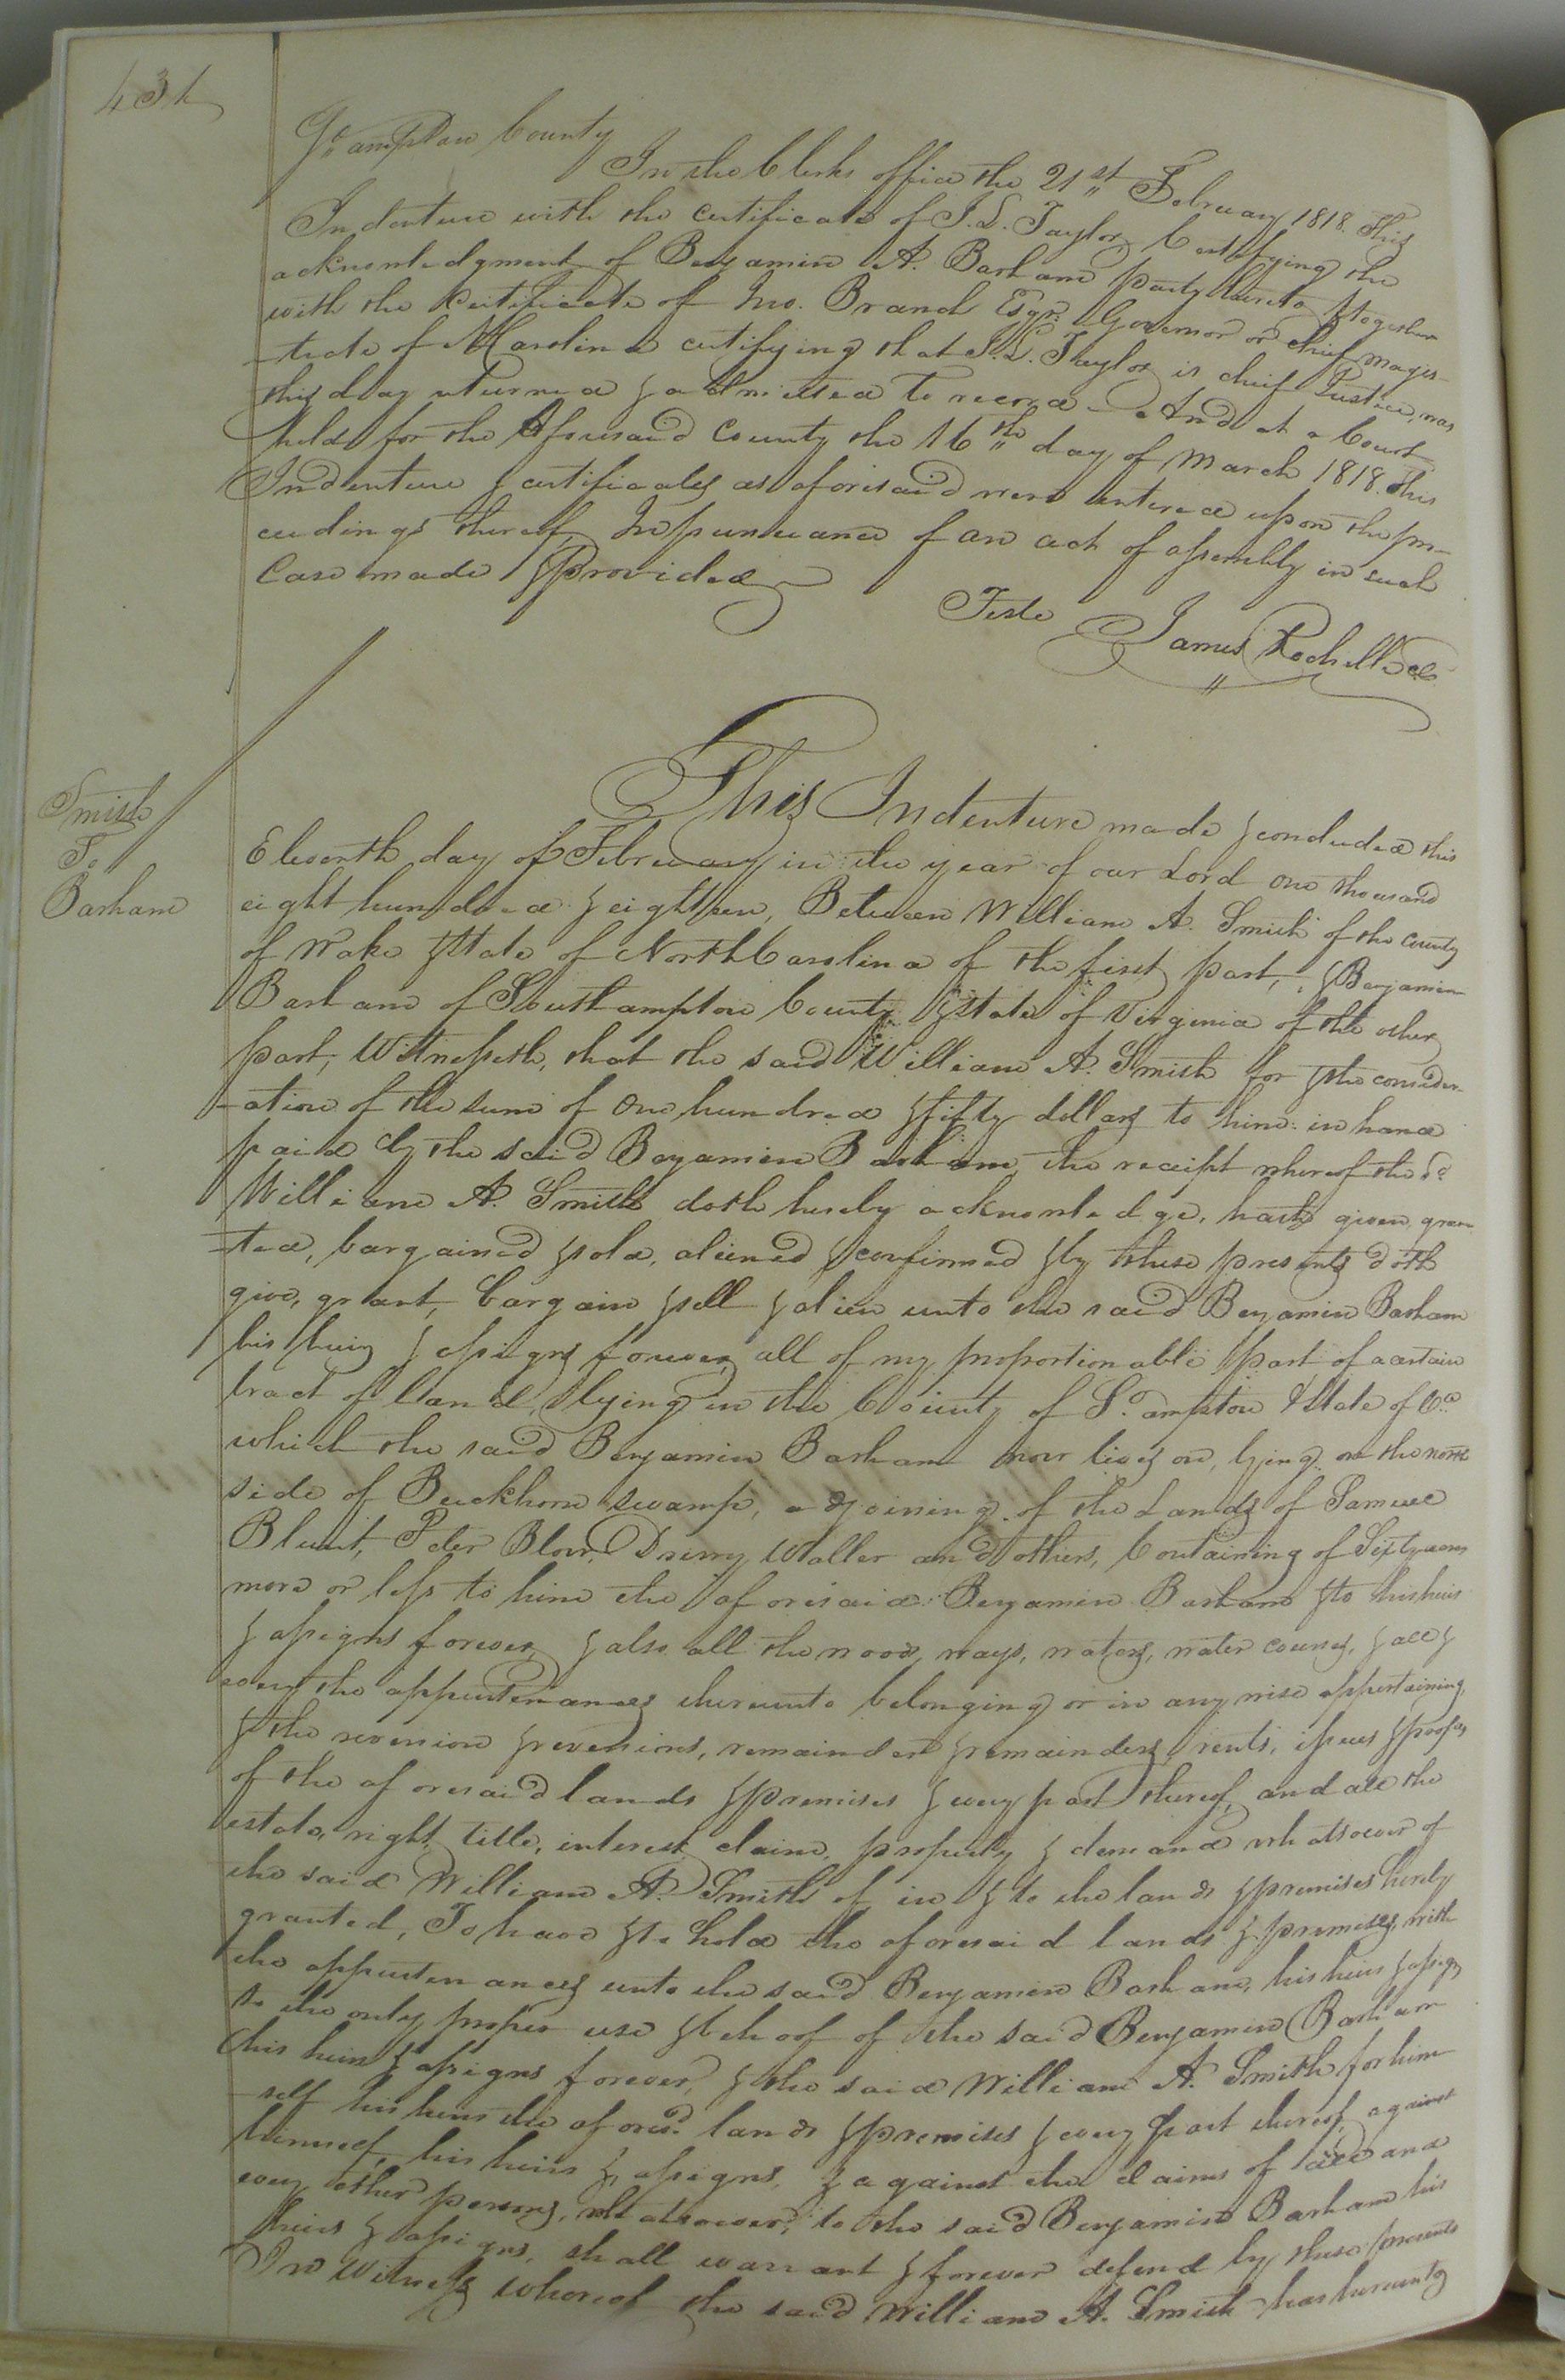 431
So.ampton County
In the Clerks office the 21st February 1818. This
Indenture with the certificate of J.L. Taylor Certifying the
acknowledgment of Benjamin A. Barham party hereto, together
with the Certificate of Jno. Brand Esqr. Governor or chief magis-
-trate of N Carolina certifying that J.L. Taylor is chief Justice, was
this day returned & admitted to record. And at a Court
held for the Aforesaid County the 16th day of March 1818. this
Indenture & certificates as aforesaid were entered upon the pro-
ceedings thereof, In pursuance of an act of assembly in such
Case made & Provided
Teste
James Rochelle CC
Smith
To
Barham
This Indenture made & concluded this
Eleventh day of February in the year of our Lord one thousand
eight hundred & eighteen, Between William A. Smith of the County
of Wake & State of North Carolina of the first part, & Benjamin
Barham of Southampton County & State of Virginia of the other
part, Witnesseth, that the said William A. Smith for & the consider-
-ation of the sum of one hundred & fifty dollars to him in hand
paid by the said Benjamin Barham, the receipt whereof the sd
William A. Smith doth hereby acknowledge, hath given, gran-
-ted, bargained & sold, aliened & confirmed & by these presents doth
give, grant, bargain & sell & alien unto the said Benjamin Barham
his heirs & assigns forever, all of my proportionable part of a certain
tract of land, lying in the County of So.ampton & State of Va
which the said Benjamin Barham now lives on, lying on the north
side of Buckhorn swamp, adjoining of the Lands of Samuel
Blunt, Peter Blow, Drury Waller and others, Containing of Sixty acres
more or less to him the aforesaid Benjamin Barham & to his heirs
& assigns forever, & also all the woods, ways, waters, water courses, & all &
every the appurtenances thereunto belonging or in any wise appertaining,
& the reversion & reversions, remainder & remainders, rents, issues & profits
of the aforesaid lands & premises & every part thereof, and all the
estate, right, title, interest, claim, property & demand whatsoever of
the said William A. Smith of in & to the lands & premises hereby
granted, To have & to hold the aforesaid lands & premises, with
the appurtenances unto the said Benjamin Barham, his heirs & assigns
to the only proper use & behoof of the said Benjamin Barham
his heirs & assigns forever, & the said William A. Smith for him-
-self his heirs the aforesd. lands & premises & every part thereof, against
himself, his heirs & assigns, & against the claims of all and
every other persons, whatsoever, to the said Benjamin Barham his
heirs & assigns, shall warrant & forever defend by these presents
In Witness whereof the said William A. Smith has hereunto